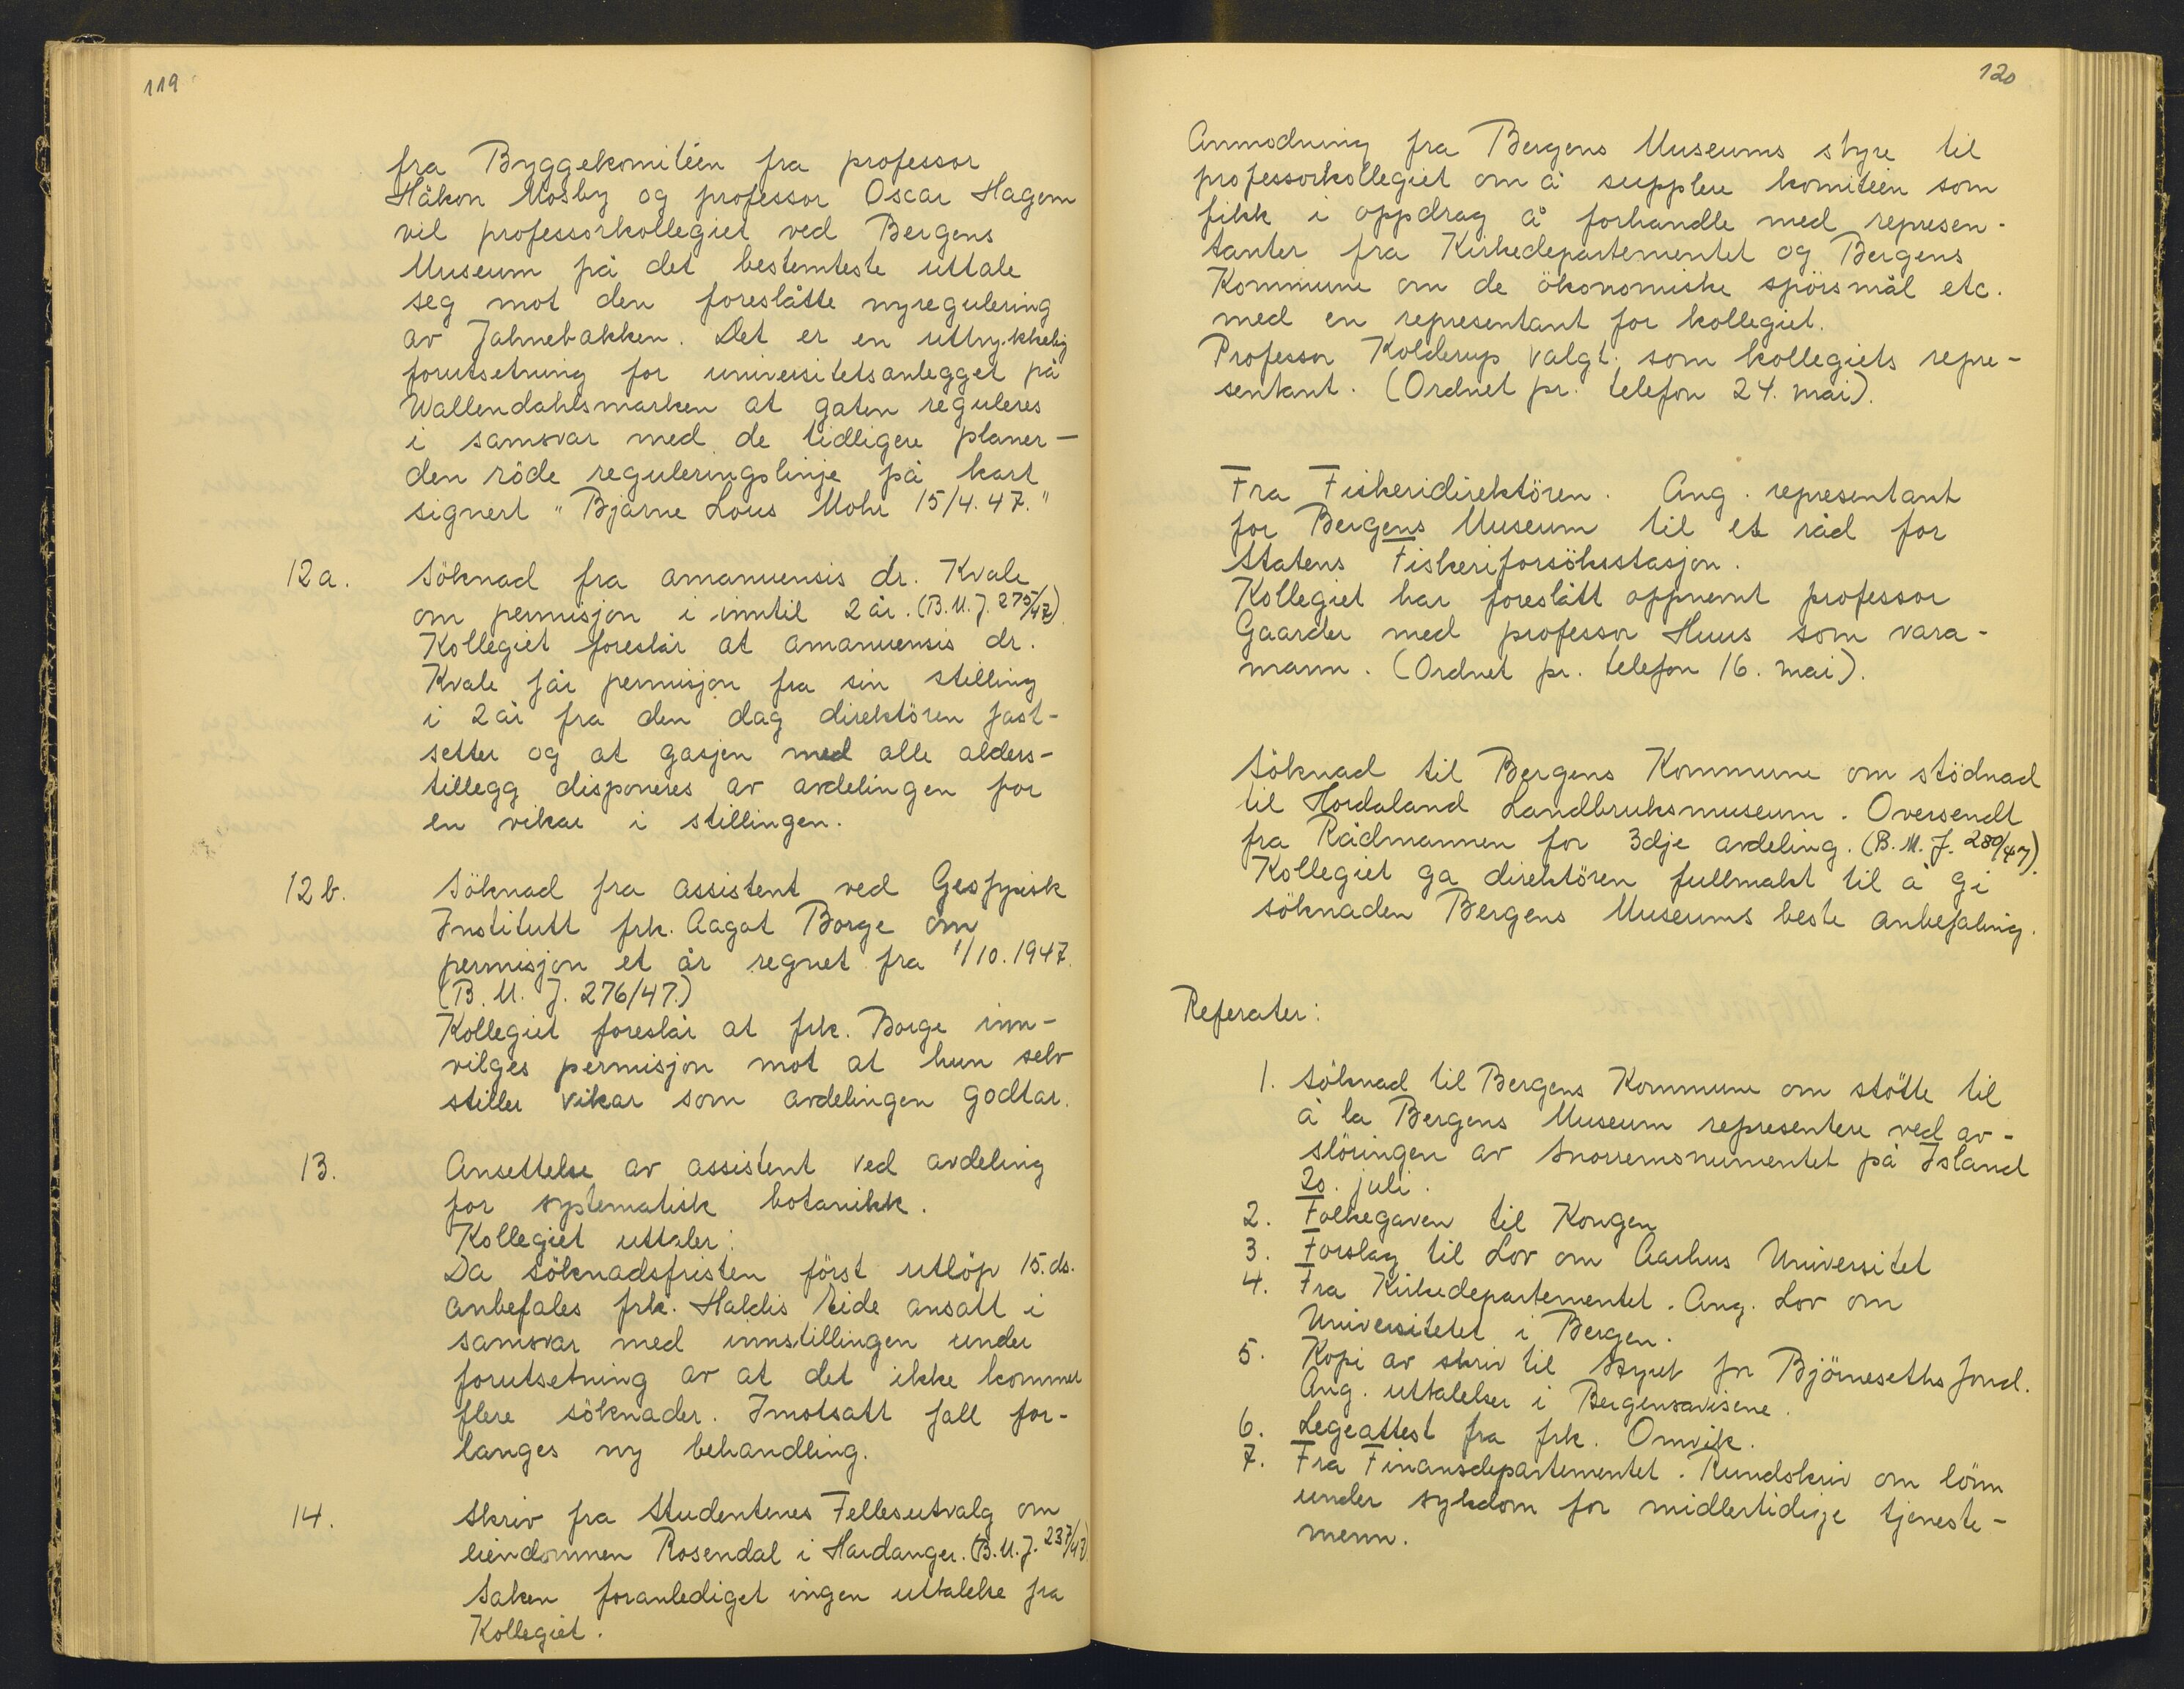 119
fra Byggekomitéen fra professor
Håkon Mosby og professor Oscar Hagem
vil professorkollegiet ved Bergens
Museum på det bestemteste uttale
seg mot den foreslåtte nyregulering
av Jahnebakken. Det er en uttrykkelig
forutsetning for universitetsanlegget på
Wallendahlsmarken at gaten reguleres
i samsvar med de tidligere planer -
den röde reguleringslinje på kart
signert "Bjarne Lous Mohr 15/4. 47."
12a. Söknad fra amanuensis dr. Kvale
om permisjon i inntil 2 år. (B.M.J. 275/47)
Kollegiet foreslår at amanuensis dr.
Kvale får permisjon fra sin stilling
i 2 år fra den dag direktören fast-
setter og at gasjen med alle alders-
tillegg disponeres av avdelingen for
en vikar i stillingen.
12b. Söknad fra assistent ved Geofysisk
Institutt frk. Aagot Borge om
permisjon et år regnet fra 1/10. 1947.
(B. M. J. 276/47.)
Kollegiet foreslår at frk. Borge inn-
vilges permisjon mot at hun selv
stiller vikar som avdelingen godtar.
13. Ansettelse av assistent ved avdeling
for systematisk botanikk.
Kollegiet uttaler:
Da söknadsfristen först utlöp 15. ds.
anbefales frk. Haldis Eide ansatt i
samsvar med innstillingen under
forutsetning av at det ikke kommer
flere söknader. Imotsatt fall for-
langes ny behandling.
14. Skriv fra Studentenes Fellesutvalg om
eiendommen Rosendal i Hardanger. (B.M.J. 237/47)
Saken foranlediget ingen uttalelse fra
Kollegiet.
120
Anmodning fra Bergens Museums styre til
professorkollegiet om å supplere komitéen som
fikk i oppdrag å forhandle med represen-
tanter fra Kirkedepartementet og Bergens
Kommune om de ökonomiske spörsmål etc.
med en representant for kollegiet.
Professor Kolderup valgt som kollegiets repre-
sentant. (Ordnet pr. telefon 24. mai).
Fra Fiskeridirektören. Ang. representant
for Bergens Museum til et råd for
Statens Fiskeriforsöksstasjon.
Kollegiet har foreslått oppnemt professor
Gaarder med professor Huus som vara-
mann. (Ordnet pr. telefon 16. mai).
Söknad til Bergens Kommune om stödnad
til Hordaland Landbruksmuseum. Oversendt
fra Rådmannen for 3dje avdeling. (B.M.J. 280/47).
Kollegiet ga direktören fullmakt til å gi
söknaden Bergens Museums beste anbefaling.
Referater:
1. Söknad til Bergens Kommune om stötte til
å la Bergens Museum representere ved av-
slöringen av Snorremonumentet på Island
20. juli.
2. Folkegaven til Kongen
3. Forslag til Lov om Aarhus Universitet
4. Fra Kirkedepartementet. Ang. Lov om
Universitetet i Bergen.
5. Kopi av skriv til Styret for Björneseths fond.
Ang. uttalelser i Bergensavisene.
6. Legeattest fra frk. Omvik.
7. Fra Finansdepartementet. Rundskriv om lönn
under sykdom for midlertidige tjeneste-
menn.